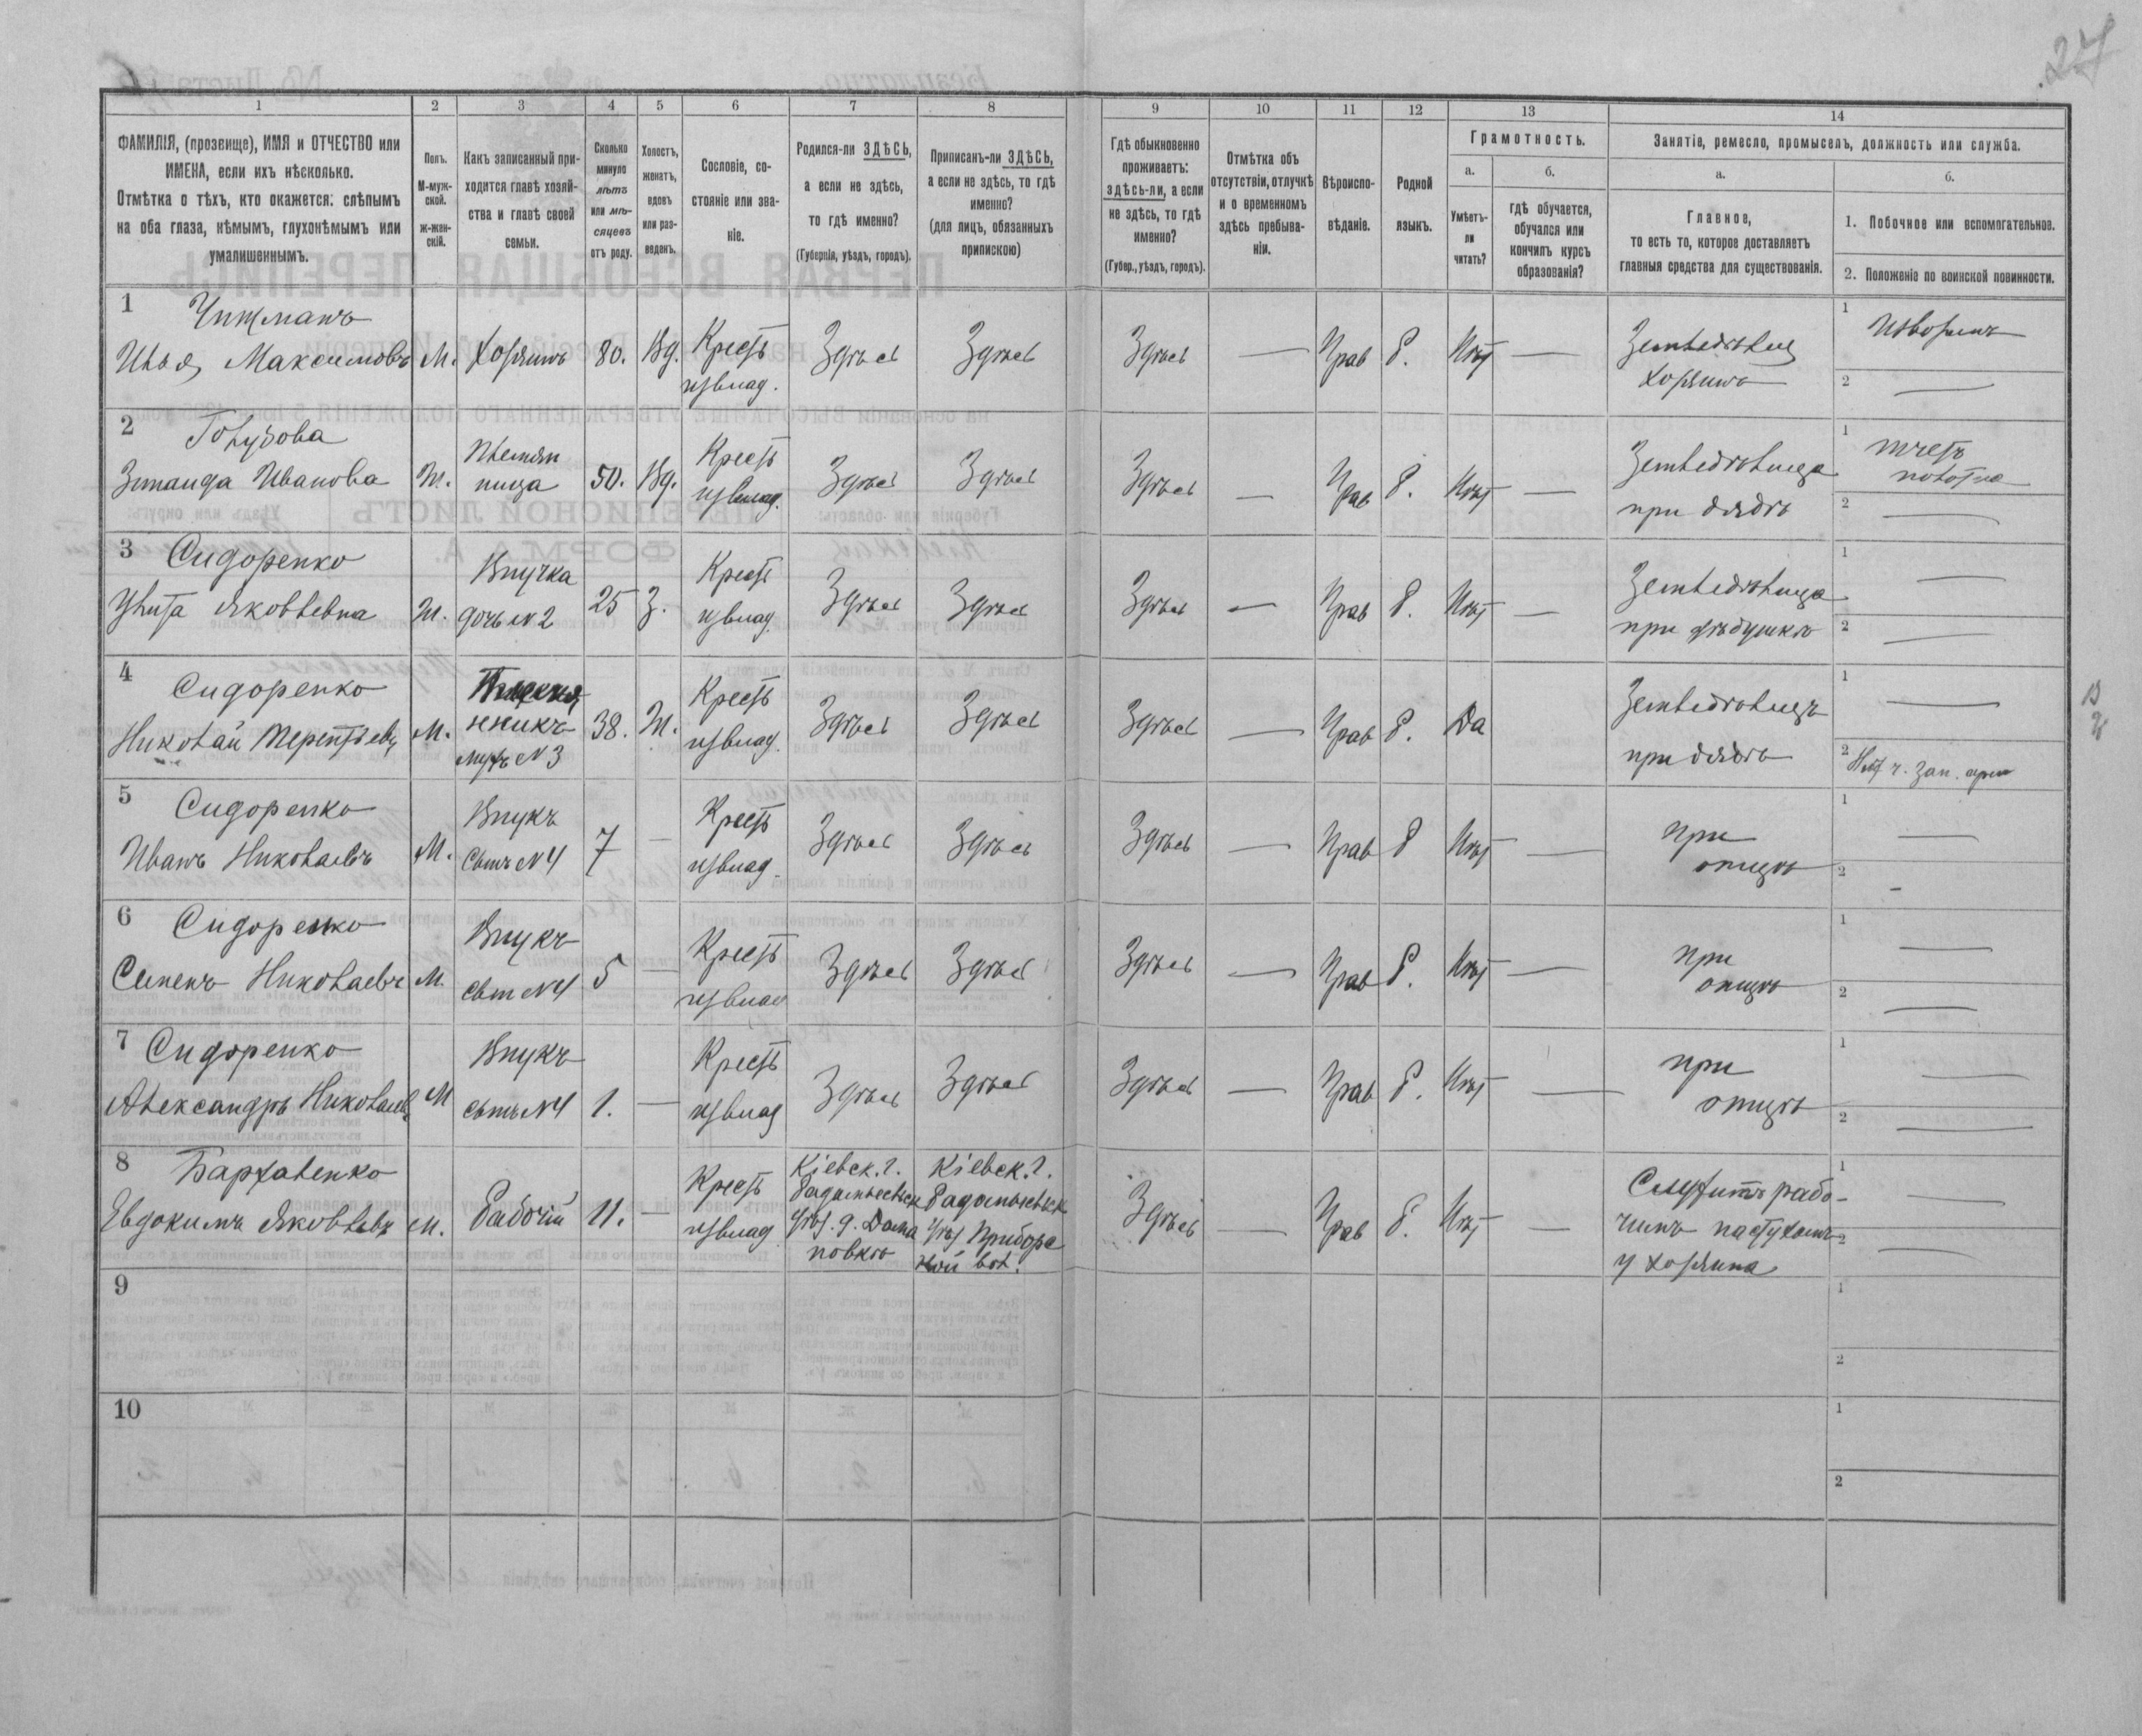 27
1 2 3 4 5 6 7 8 9 10 11 12 13 14
ФАМИЛІЯ, (прозвище), ИМЯ и ОТЧЕСТВО или
ИМЕНА, если ихъ нѣсколько.
Отмѣтка о тѣхъ, кто окажется: слѣпымъ
на оба глаза, нѣмымъ, глухонѣмымъ или
умалишеннымъ.
Полъ.
М-муж-
ской.
Ж-жен-
скій.
Какъ записанный при-
ходится главѣ хозяй-
ства и главѣ своей
семьи.
Сколько
минуло
лѣтъ
или мѣ-
сяцевъ
отъ роду.
Холостъ,
женатъ,
вдовъ
или раз-
веденъ.
Сословіе, со-
стояніе или зва-
ніе.
Родился-ли ЗДѢСЬ,
а если не здѣсь,
то гдѣ именно?
(Губернія, уѣздъ, городъ).
Приписанъ-ли ЗДѢСЬ,
а если не здѣсь, то гдѣ
именно?
(для лицъ, обязанныхъ
припискою)
Гдѣ обыкновенно
проживаетъ:
здѣсь-ли, а если
не здѣсь, то гдѣ
именно?
(Губер., уѣздъ, городъ).
Отмѣтка объ
отсутствіи, отлучкѣ
и о временномъ
здѣсь пребыва-
ніи.
Вѣроиспо-
вѣданіе.
Родной
языкъ.
Грамотность.
а.
Умѣетъ-
ли
читать?
б.
гдѣ обучается,
обучался или
кончилъ курсъ
образованія?
Занятіе, ремесло, промыселъ, должность или служба.
а.
Главное,
то есть то, которое доставляетъ
главныя средства для существованія.
б.
1. Побочное или вспомогательное.
2. Положеніе по воинской повинности.
1 Чижманъ
Илья Максимовъ М. Хозяинъ 80. Вд. Крест
извлад. Здѣсь Здѣсь Здѣсь — Прав Р. Нѣт — Земледѣлец
хозяинъ
1 Извозомъ
2 —
2 Голузова
Зинаида Иванова Ж. Племян
ница 50. Вд. Крест
извлад. Здѣсь Здѣсь Здѣсь — Прав Р. Нѣт — Земледѣлица
при дядѣ
1 ткетъ
полотна
2 —
3 Сидоренко
Улита Яковлевна Ж. Внучка
дочь N 2 25 З. Крест
извлад. Здѣсь Здѣсь Здѣсь — Прав Р. Нѣт — Земледѣлица
при дѣдушкѣ
1 —
2 —
4 Сидоренко
Николай Терентьевъ М.
нникъ
мужъ N 3 38. Ж. Крест
извлад. Здѣсь Здѣсь Здѣсь — Прав Р. Да Земледѣлецъ
при дядѣ
1 —
2 зап.
5 Сидоренко
Иванъ Николаевъ М. Внукъ
Сынъ N 4 7 — Крест
извлад. Здѣсь Здѣсь Здѣсь — Прав Р Нѣт — при
отцѣ
1 —
2 -
6 Сидоренко
Семенъ Николаевъ М. Внукъ
сын N 4 5 — Крест
извлад Здѣсь Здѣсь Здѣсь — Прав Р. Нѣт — при
отцѣ
1 —
2 —
7 Сидоренко
Александръ Николаевъ М Внукъ
сынъ N 4 1. — Крест
извлад Здѣсь Здѣсь Здѣсь — Прав Р. Нѣт — при
отцѣ
1 —
2 —
8 Бархаленко
Евдокимъ Яковлевъ М. Рабочій 11. — Крест
извлад Кіевск. г.
Радомысльск
Уѣз. д.
Кіевск. г.
Радомысльск
Уѣз Приборс
кой вол.
Здѣсь — Прав Р. Нѣт — Служитъ рабо-
чимъ пастухомъ
у хозяина
1 —
2 —
9
1
2
10
1
2